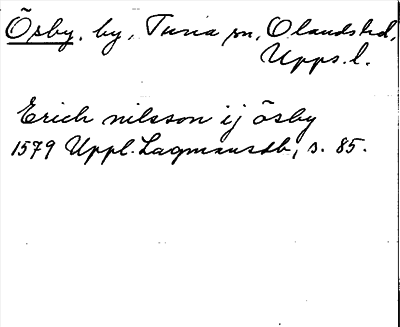 Õsby, by, Tuna sn, Olands hd,
Upps. l.
Erich nilsson ij õsby
1579 Uppl. Lagmansdb, s. 85.